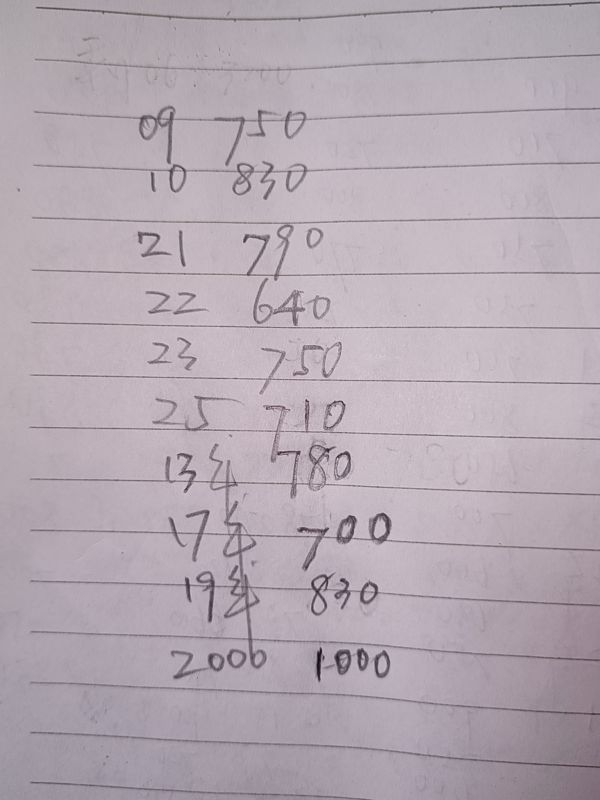 09 750
10 830
21 790
22 640
23 750
25 710
13年 780
17年 700
19年 830
2000 1000